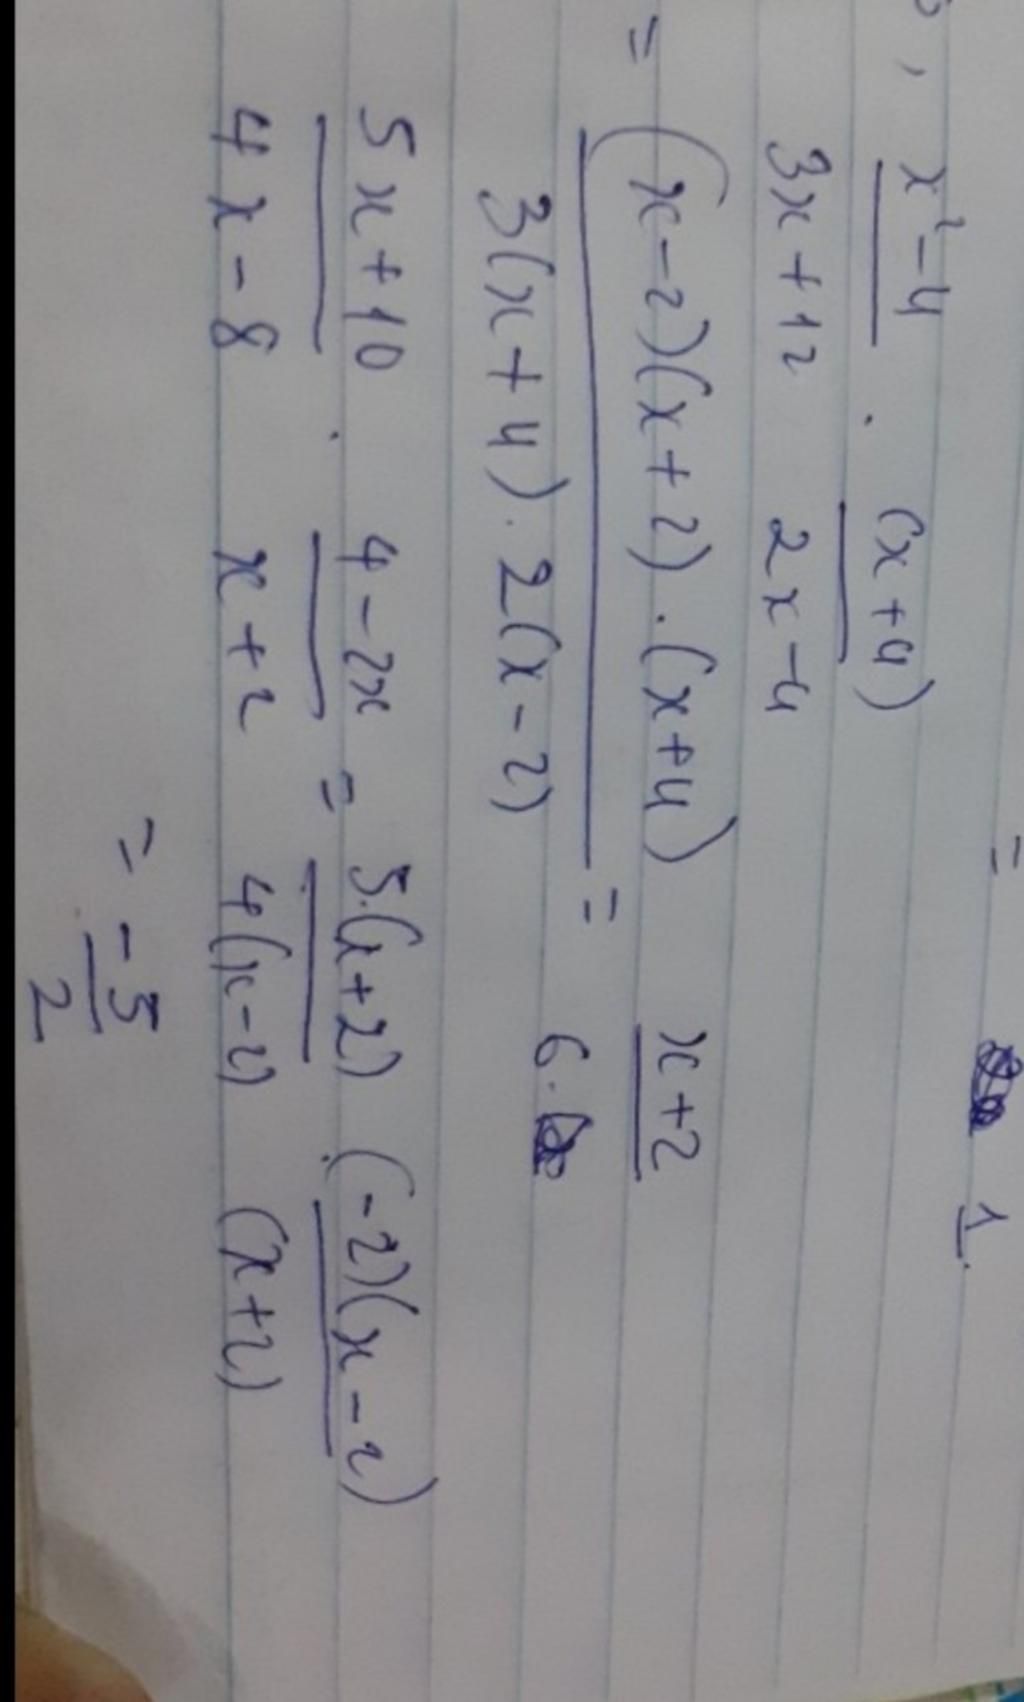 = 1
x²-4 / 3x+12 . (x+4) / 2x-4
= (x-2)(x+2).(x+4) / 3(x+4).2(x-2) = x+2 / 6.
5x+10 / 4x-8 . 4-2x / x+2 = 5.(x+2) / 4(x-2) . (-2)(x-2) / (x+2)
= -5 / 2